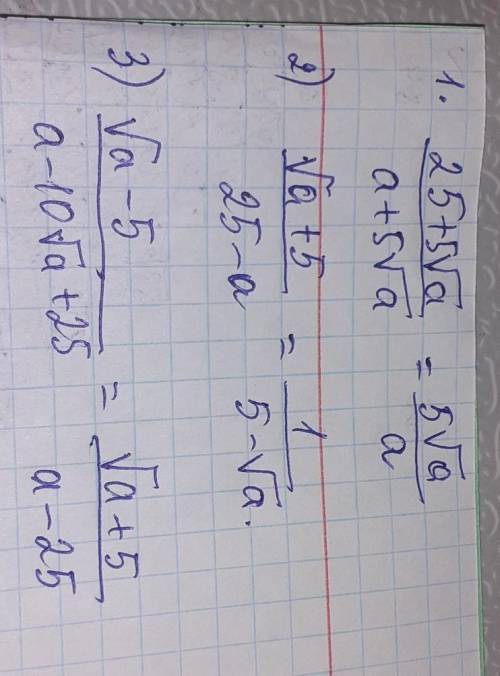 1. (25+5√a)/(a+5√a) = (5√a)/a
2) (√a+5)/(25-a) = 1/(5-√a).
3) (√a-5)/(a-10√a+25) = (√a+5)/(a-25)